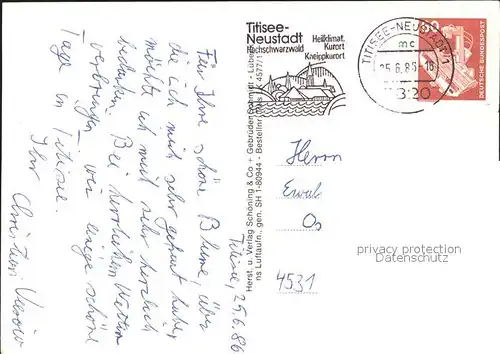 Titisee, 25.6.86
Für Ihre schöne Blume, über
die ich mich sehr gefreut habe,
möchte ich mich sehr herzlich
bedanken. Bei herrlichem Wetter
verbringen wir einige schöne
Tage in Titisee.
Ihr Christian
Titisee-
Neustadt
Hochschwarzwald
Heilklimat.
Kurort
Kneippkurort
TITISEE-NEUSTADT 1
mc
25.6.86-16
7820
DEUTSCHE BUNDESPOST
Herst. u. Verlag Schöning & Co + Gebrüder Schmidt - Lübeck
ns Luftaufn., gen. SH 1-80944 - Bestellnr.
Herrn
4531
privacy protection
Datenschutz